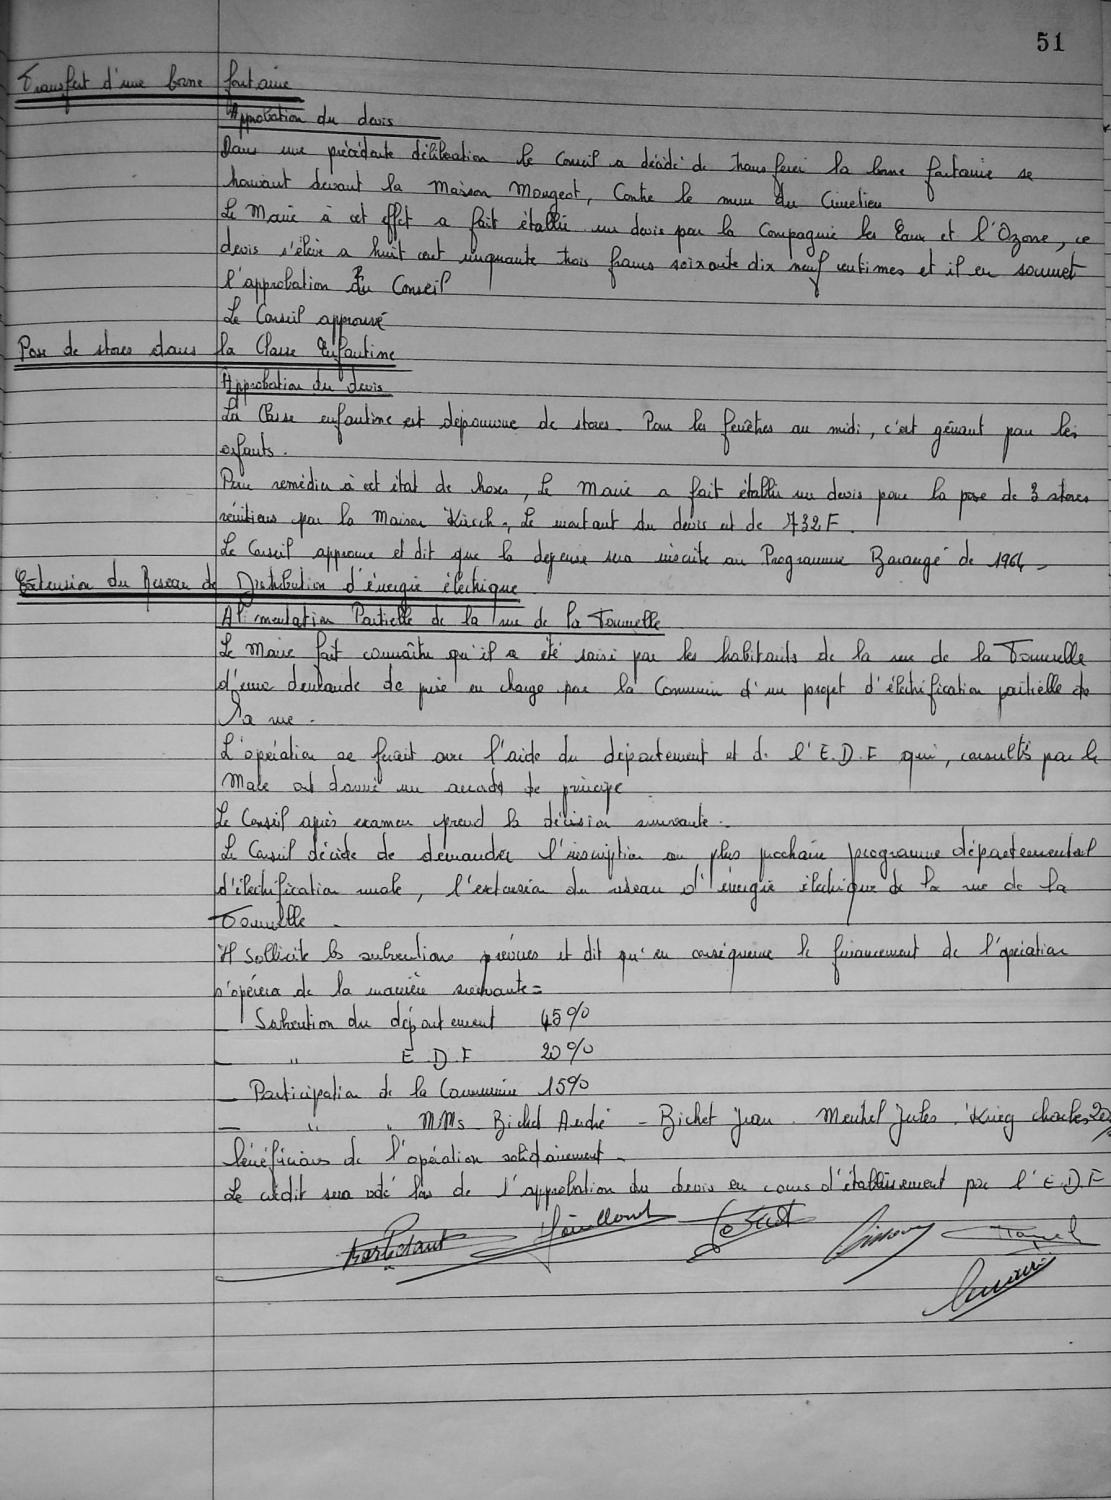 51
Transfert d'une borne fontaine
Approbation du devis
Dans une précédente délibération le Conseil a décidé de transférer la borne fontaine se
trouvant devant la Maison Mougeot, Contre le mur du Cimetière
Le Maire à cet effet a fait établir un devis par la Compagnie les Eaux et l'Ozone, ce
devis s'élève a huit cent cinquante trois francs soixante dix neuf centimes et il en soumet
l'approbation du Conseil
Le Conseil approuve
Pose de stores dans la Classe Enfantine
Approbation du devis
La Classe enfantine est dépourvue de stores. Pour les fenêtres au midi, c'est gênant pour les
enfants.
Pour remédier à cet état de choses, Le Maire a fait établir un devis pour la pose de 3 stores
vénitiens par la Maison Kirsch, Le montant du devis est de 732 F.
Le Conseil approuve et dit que la dépense sera inscrite au Programme Barangé de 1964 -
Extension du Reseau de Distribution d'énergie électrique
Alimentation Partielle de la rue de la Tournelle
Le Maire fait connaître qu'il a été saisi par les habitants de la rue de la Tournelle
d'une demande de prise en charge par la Commune d'un projet d'électrification partielle de
la rue.
L'opération se ferait avec l'aide du département et de l'E.D.F qui, consultés par le
Maire ont donné un accord de principe
Le Conseil après examen prend la décision suivante.
Le Conseil décide de demander l'inscription au plus prochain programme départemental
d'électrification rurale, l'extension du réseau d'énergie électrique de la rue de la
Tournelle -
Il Sollicite les subventions prévues et dit qu'en conséquence le financement de l'opération
s'opérera de la manière suivante =
- Subvention du département 45%
- " E.D.F 20%
- Participation de la Commune 15%
- " " MMs Bichet André - Bichet Jean. Meuhel Jules. Krieg Charles 20%
bénéficiaires de l'opération solidairement.
Le crédit sera voté lors de l'approbation du devis en cours d'établissement par l'E.D.F